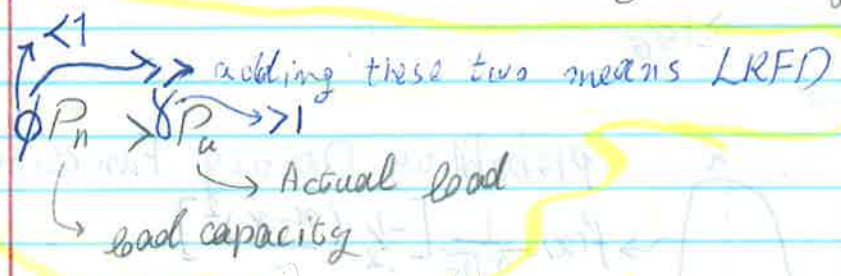 <1
adding these two means LRFD
ϕPn > γPu >1
Actual load
load capacity